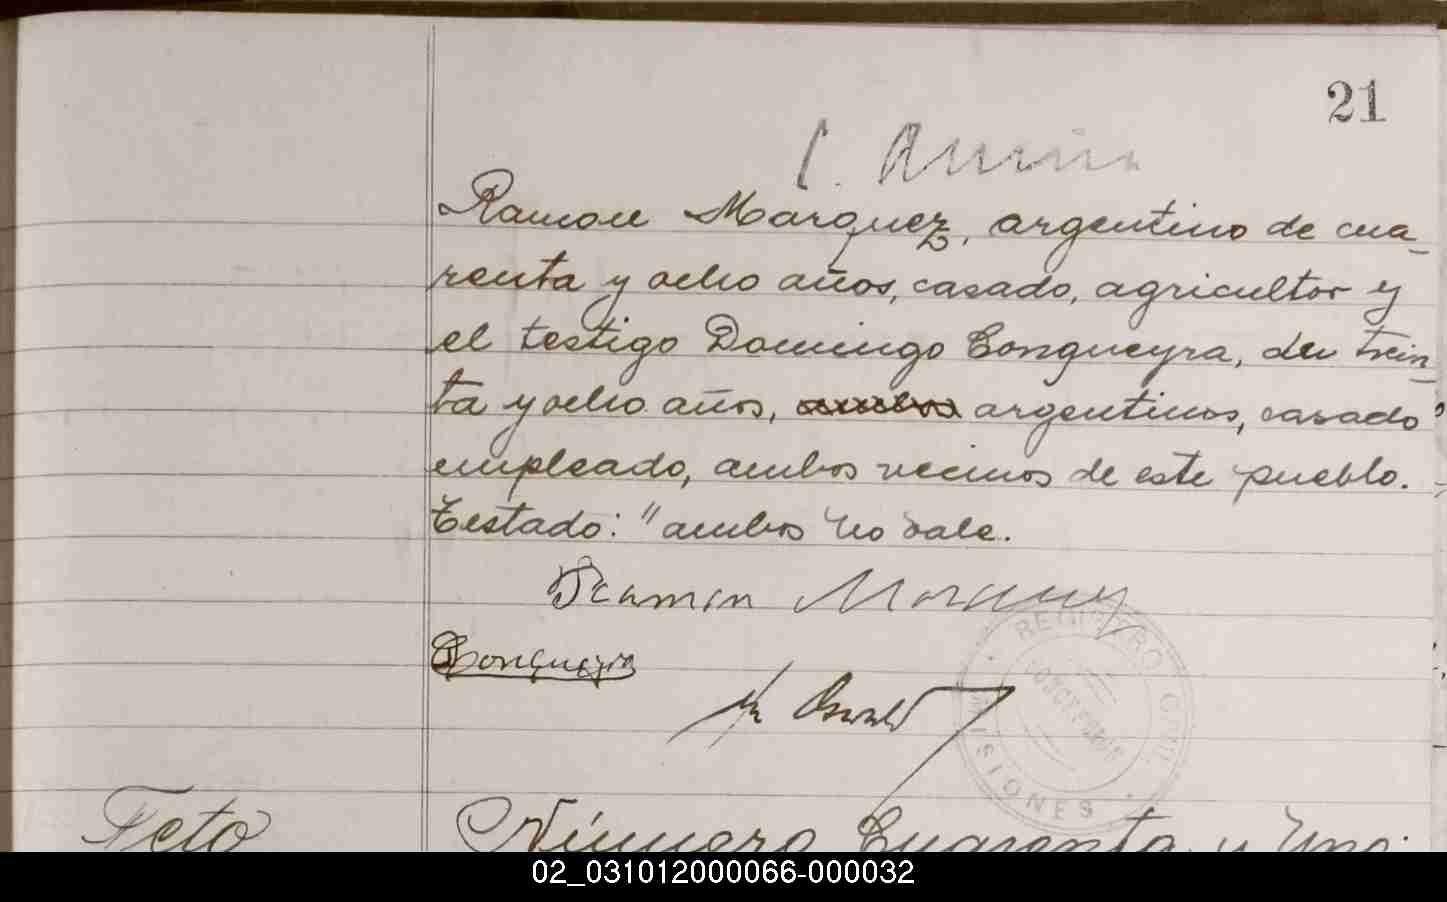 21
Ramon Marquez, argentino de cua-
renta y ocho años, casado, agricultor y
el testigo Domingo Congueyra, de trein-
ta y ocho años, ambos argentinos, casado
empleado, ambos vecinos de este pueblo.
Testado: "ambos" no vale.
Ramon Marquez
Congueyra
Oswald
REGISTRO CIVIL
MISIONES
Feto
Número Cuarenta y Uno.
02_031012000066-000032